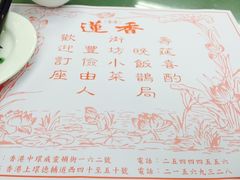 蓮香
壽筵喜酌
晚飯鵲局
街坊小菜
豐儉由人
歡迎訂座
：香港中環威靈頓街一六二號 電話：二五四四四五五六
：香港上環德輔道西四十至五十號 電話：二一五六九三二八